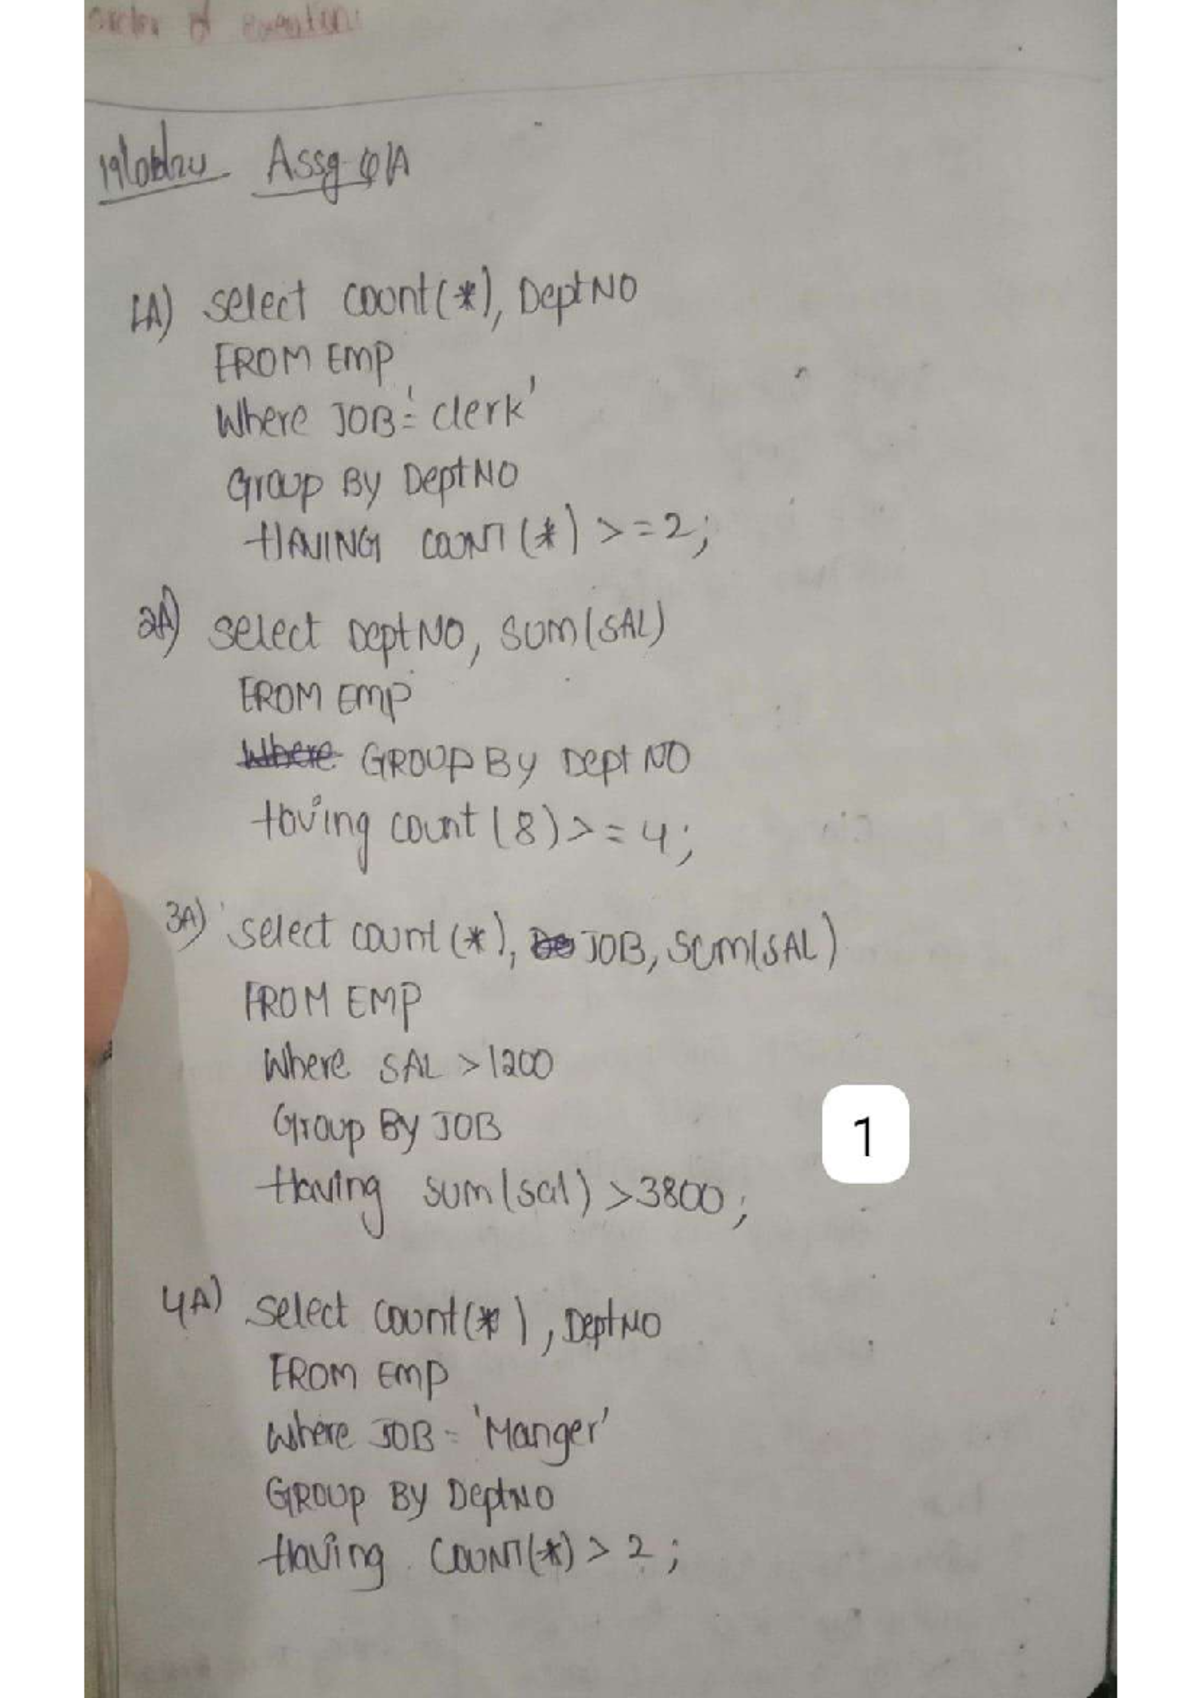 order of execution:
Assg Q/A
1A) select count(*), DeptNO
FROM EMP
Where JOB='clerk'
Group By DeptNO
HAVING COUNT(*) >=2;
2A) select DeptNO, SUM(SAL)
FROM EMP
Where GROUP By Dept NO
Having count(8)>=4;
3A) select count(*), De JOB, SUM(SAL)
FROM EMP
Where SAL >1200
Group By JOB
Having sum(sal) >3800;
1
4A) select count(*), DeptNO
FROM EMP
Where JOB = 'Manger'
GROUP BY DeptNO
Having COUNT(*) > 2;